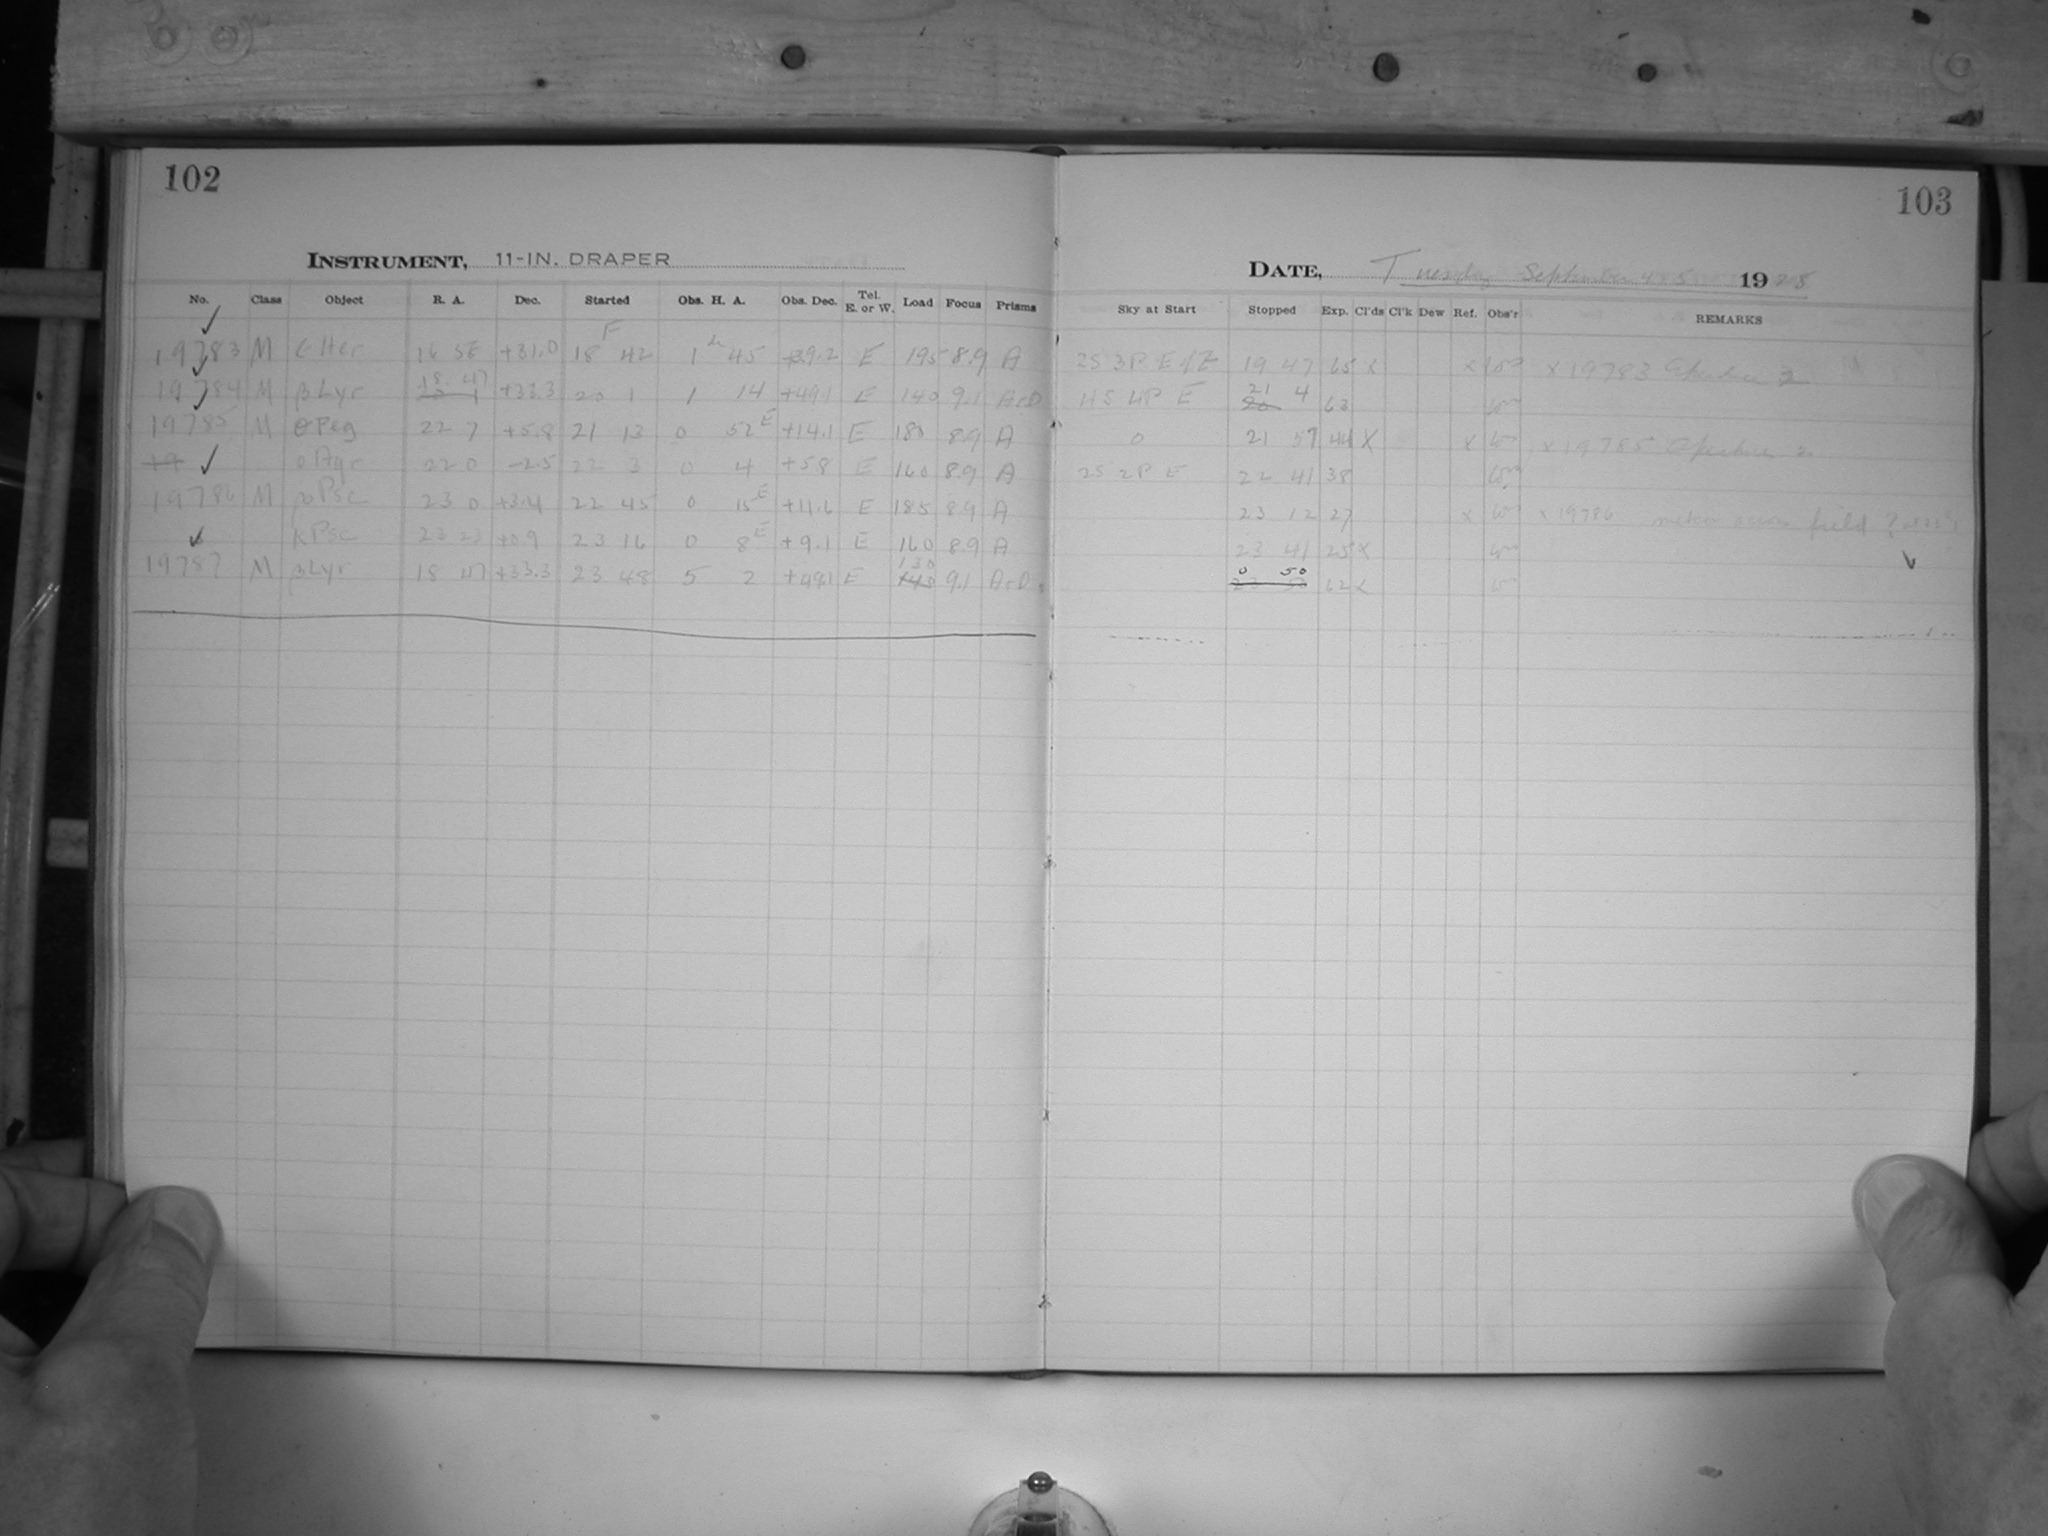 102
INSTRUMENT, 11-IN. DRAPER
No. Class Object R. A. Dec. Started Obs. H. A. Obs. Dec. Tel. E. or W. Load Focus Prisms
19783 M ε Her 16 56 +31.0 18 42 1 45 +39.2 E 195 8.9 A
19784 M β Lyr 18 47 +33.3 20 1 1 14 +49.1 E 140 9.1
19785 M θ Peg 22 7 +5.8 21 13 0 52 E +14.1 E 180 8.9 A
o Aqr 22 0 -2.5 22 3 0 4 +5.8 E 160 8.9 A
19786 M Psc 23 0 +3.4 22 45 0 15 E +11.6 E 185 8.9 A
κ Psc 23 23 +0.9 23 16 0 8 E +9.1 E 160 8.9 A
19787 M β Lyr 18 47 +33.3 23 48 5 2 +49.1 E 130 9.1
103
DATE, Tuesday September 4 1928
Sky at Start Stopped Exp. Cl'ds Cl'k Dew Ref. Obs'r REMARKS
2S 3P E 19 47 65 x x x 19783
4S 4P E 21 4 63
0 21 57 44 x x x 19785
2S 2P E 22 41 38
23 12 27 x x 19786 meteor across field ?
23 41 25 x
0 50 62 x